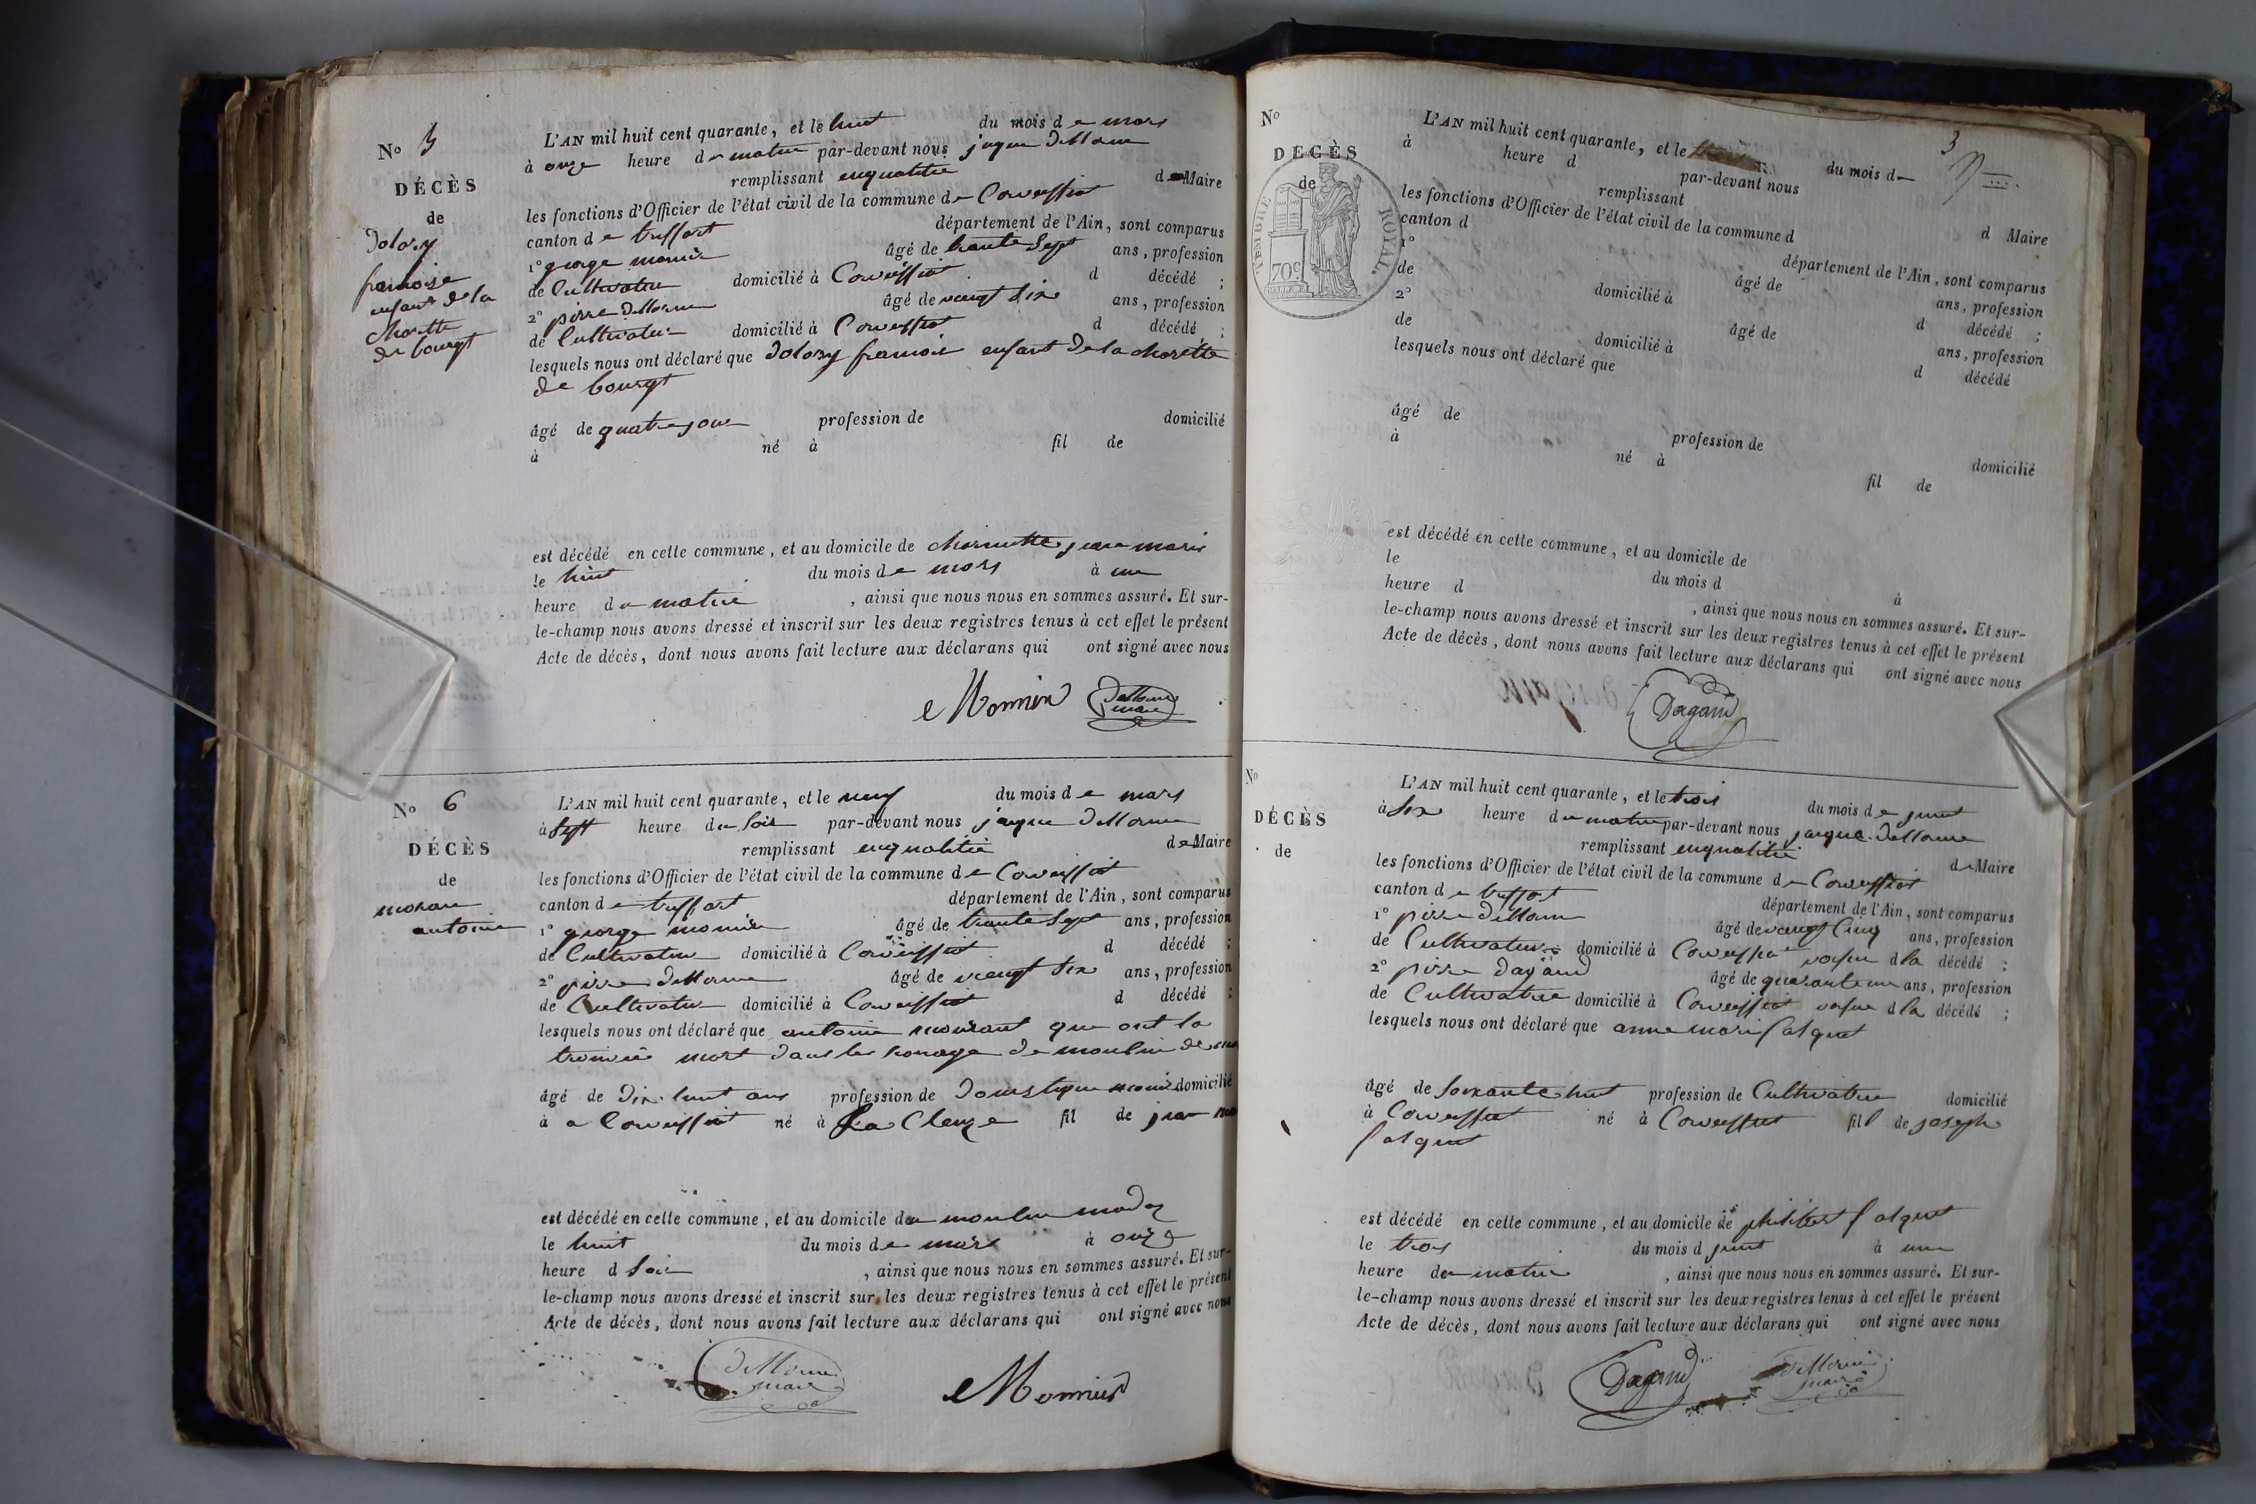 No 5
DÉCÈS
de
dolozy
francoise
enfant de la
charette
de bourgt
L'AN mil huit cent quarante, et le huit du mois de mars
à onze heure du matin par-devant nous jaque dellorme
remplissant enqualitée de Maire
les fonctions d'Officier de l'état civil de la commune de Corveissiat
canton de treffort département de l'Ain, sont comparus
1° george monnier âgé de trante sept ans, profession
de Cultivateur domicilié à Corveissiat d décédé ;
2° pierre dellorme âgé de vengt six ans, profession
de Cultivateur domicilié à Corveissiat d décédé ;
lesquels nous ont déclaré que dolozy francoise enfant de la charette
de bourgt
âgé de quatre jour profession de domicilié
à né à fil de
est décédé en cette commune, et au domicile de jean marie
le huit du mois de mars à une
heure du matin , ainsi que nous nous en sommes assuré. Et sur-
le-champ nous avons dressé et inscrit sur les deux registres tenus à cet effet le présent
Acte de décès, dont nous avons fait lecture aux déclarans qui ont signé avec nous
Monnier dellorme
maire
No 6
DÉCÈS
de
antoine
L'AN mil huit cent quarante, et le neuf du mois de mars
à sept heure du soir par-devant nous jaque dellorme
remplissant enqualitée de Maire
les fonctions d'Officier de l'état civil de la commune de Corveissiat
canton de treffort département de l'Ain, sont comparus
1° george monnier âgé de trante sept ans, profession
de Cultivateur domicilié à Corveissiat d décédé ;
2° pierre dellorme âgé de vengt six ans, profession
de Cultivateur domicilié à Corveissiat d décédé ;
lesquels nous ont déclaré que antoine que ont la
mort dans les de moulin de
âgé de dix huit ans profession de domicilié
à a Corveissiat né à La Cleuze fil de jean
est décédé en cette commune, et au domicile du moulin
le huit du mois de mars à onze
heure d soir , ainsi que nous nous en sommes assuré. Et sur-
le-champ nous avons dressé et inscrit sur les deux registres tenus à cet effet le présent
Acte de décès, dont nous avons fait lecture aux déclarans qui ont signé avec nous
dellorme
maire
Monnier
3
No
DECÈS
de
TIMBRE ROYAL.
70c
L'AN mil huit cent quarante, et le du mois d
à heure d par-devant nous
remplissant d Maire
les fonctions d'Officier de l'état civil de la commune d
canton d département de l'Ain, sont comparus
1° âgé de ans, profession
de domicilié à d décédé ;
2° âgé de ans, profession
de domicilié à d décédé
lesquels nous ont déclaré que
âgé de profession de domicilié
à né à fil de
est décédé en cette commune, et au domicile de
le du mois d à
heure d , ainsi que nous nous en sommes assuré. Et sur-
le-champ nous avons dressé et inscrit sur les deux registres tenus à cet effet le présent
Acte de décès, dont nous avons fait lecture aux déclarans qui ont signé avec nous
Dagand
No
DÉCÈS
de
L'AN mil huit cent quarante, et le trois du mois de juint
à six heure du matin par-devant nous jaque dellorme
remplissant enqualitée de Maire
les fonctions d'Officier de l'état civil de la commune de Corveissiat
canton de treffort département de l'Ain, sont comparus
1° pierre dellorme âgé de vengt cinq ans, profession
de Cultivateur domicilié à Corveissiat d la décédé ;
2° pierre dagand âgé de quarante un ans, profession
de Cultivateur domicilié à Corveissiat d la décédé ;
lesquels nous ont déclaré que anne marie falquet
âgé de soixante huit profession de Cultivatrice domicilié
à Corveissiat né à Corveissiat fil de joseph
falquet
est décédé en cette commune, et au domicile de philibert falquet
le trois du mois d juint à une
heure du matin , ainsi que nous nous en sommes assuré. Et sur-
le-champ nous avons dressé et inscrit sur les deux registres tenus à cet effet le présent
Acte de décès, dont nous avons fait lecture aux déclarans qui ont signé avec nous
Dagand dellorme
maire